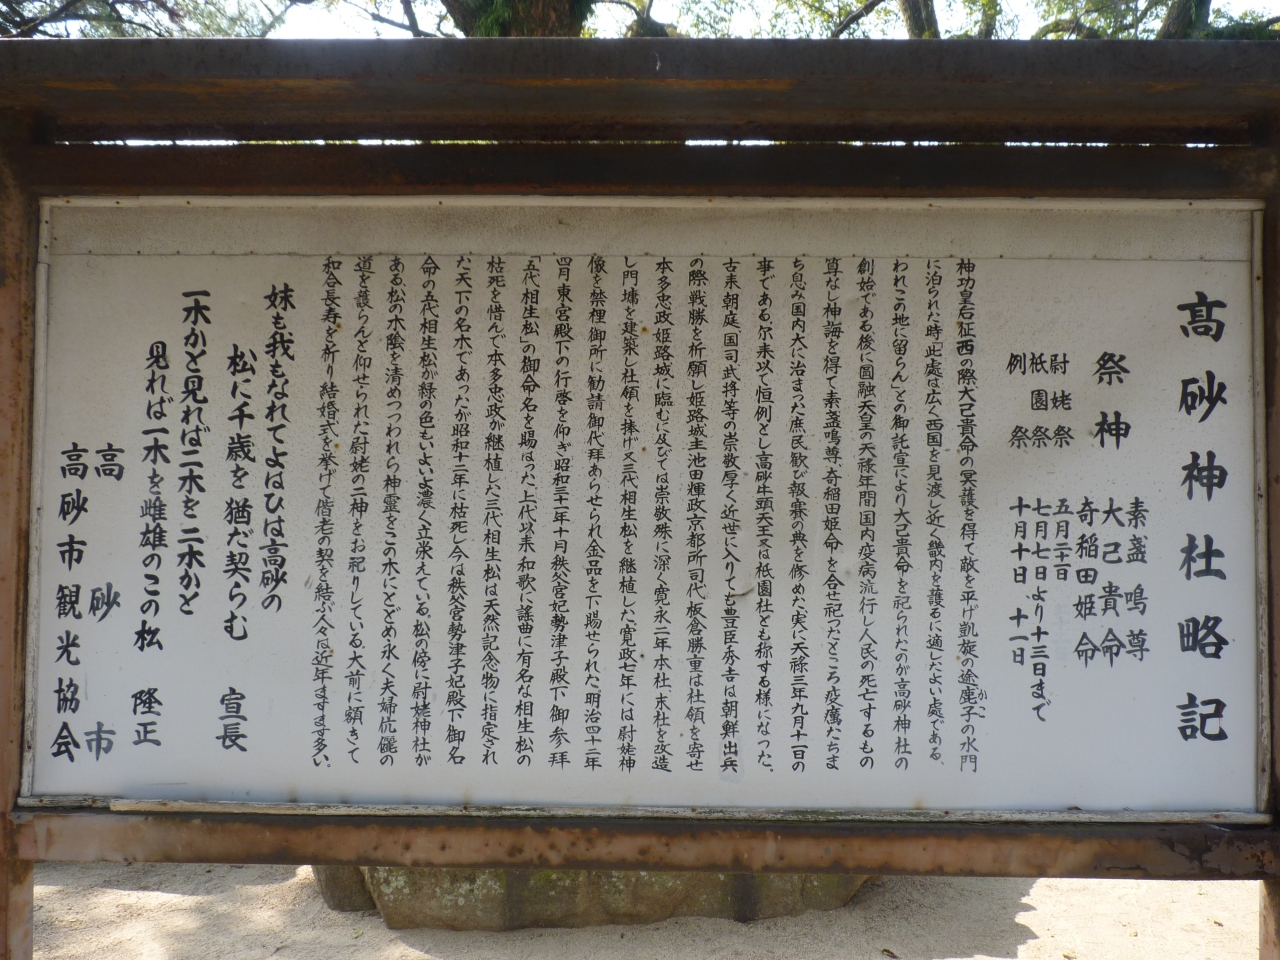 高砂神社略記
祭神
素盞鳴尊
大己貴命
奇稲田姫命
尉姥祭 五月二十一日
祇園祭 七月七日より十三日まで
例祭 十月十日、十一日
神功皇后征西の際大己貴命の冥護を得て敵を平げ凱旋の途鹿子の水門
かこ
に泊られた時「此處は広く西国を見渡し近く畿内を護るに適したよい處である、
われこの地に留らん」との御託宣により大己貴命を祀られたのが高砂神社の
創始である。後に円融天皇の天禄年間国内疫病流行し人民の死亡するもの
算なし神誨を得て素盞鳴尊、奇稲田姫命を合せ祀つたところ疫癘たちま
ち息み国内大に治まつた庶民歓び報賽の典を修めた実に天禄三年九月十一日の
事である。尓来以て恒例とし高砂牛頭天王又は祇園社とも称する様になつた。
古来朝庭、国司、武将等の崇敬厚く近世に入りても豊臣秀吉は朝鮮出兵
の際戦勝を祈願し姫路城主池田輝政、京都所司代、板倉勝重は社領を寄せ
本多忠政姫路城に臨むに及びては崇敬殊に深く寛永二年本社、末社を改造
し門墻を建築し社領を捧げ又三代相生松を継植した。寛政七年には尉姥神
像を禁裡御所に勧請御代拝あらせられ金品を下賜せられた。明治四十二年
四月東宮殿下の行啓を仰ぎ昭和三十一年十月秩父宮妃勢津子殿下御参拝
「五代相生松」の御命名を賜はつた。上代以来和歌に謡曲に有名な相生松の
枯死を惜んで本多忠政が継植した三代相生松は天然記念物に指定され
た天下の名木であつたが昭和十二年に枯死し今は秩父宮勢津子妃殿下御名
命の五代相生松が緑の色もいよいよ濃く立栄えている。松の傍に尉姥神社が
ある、松の木陰を清めつつわれら神霊をこの木にとどめ永く夫婦伉儷の
道を護らんと仰せられた尉姥の二神をお祀りしている。大前に額きて
和合長寿を祈り結婚式を挙げて偕老の契を結ぶ人々は近年ますます多い。
妹も我もなれてよはひは高砂の
松に千歳を猶だ契らむ 宣長
一木かと見れば二木を二木かと
見れば一木を雌雄のこの松 隆正
高砂市
高砂市観光協会